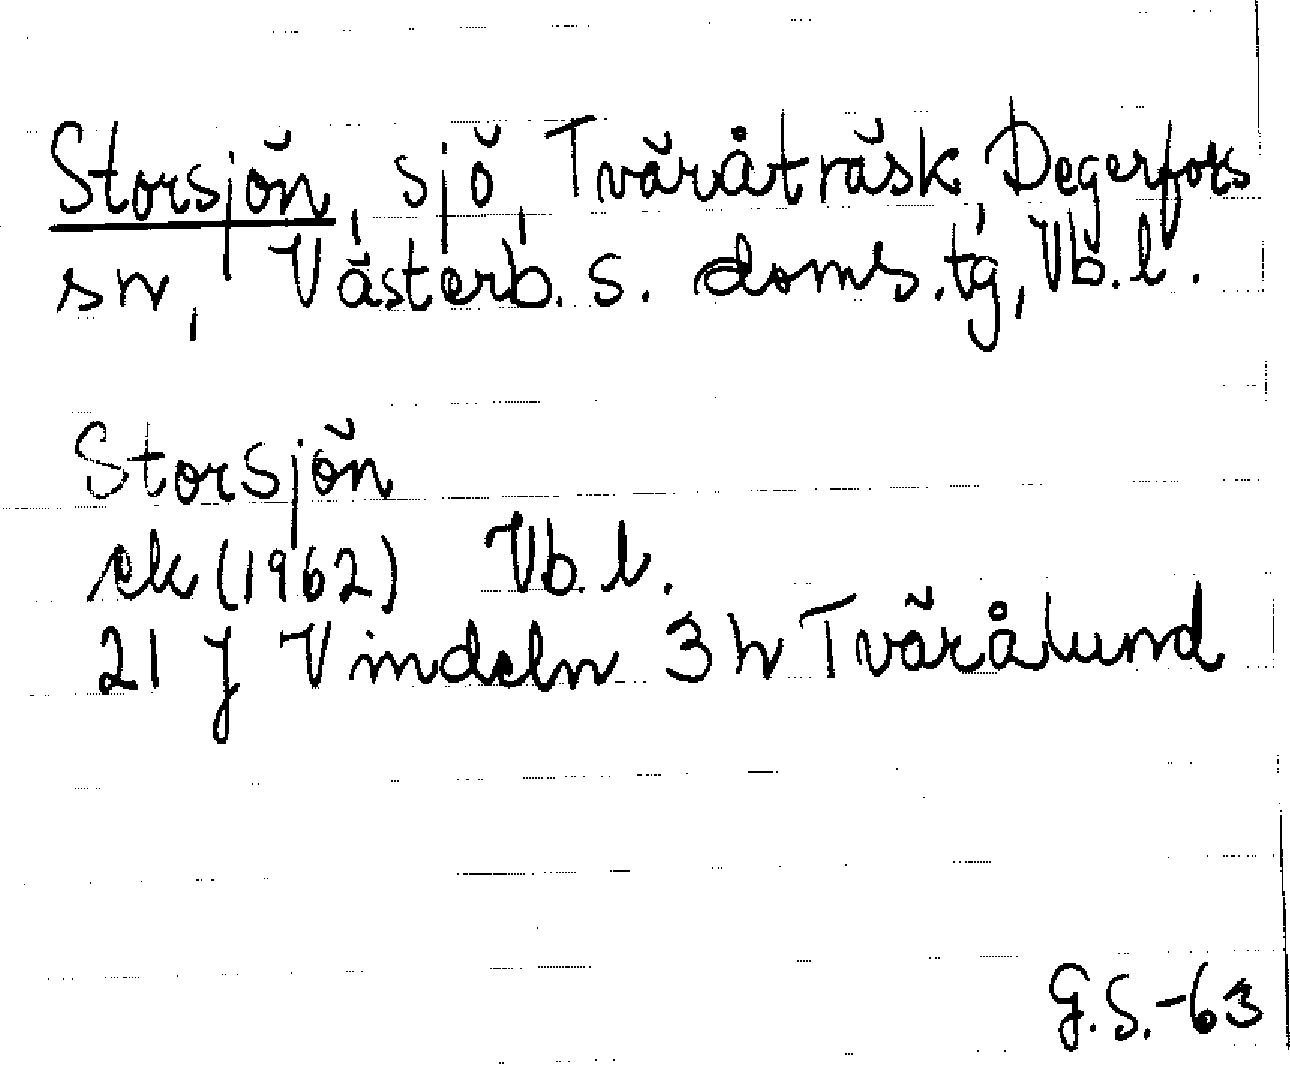 Storsjön, sjö, Tväråträsk, Degerfors
sn, Västerb. s. doms.tg, Vb. l.
Storsjön
ek (1962) Vb. l.
21 J Vindeln 3 h Tvärålund
G.S.-63